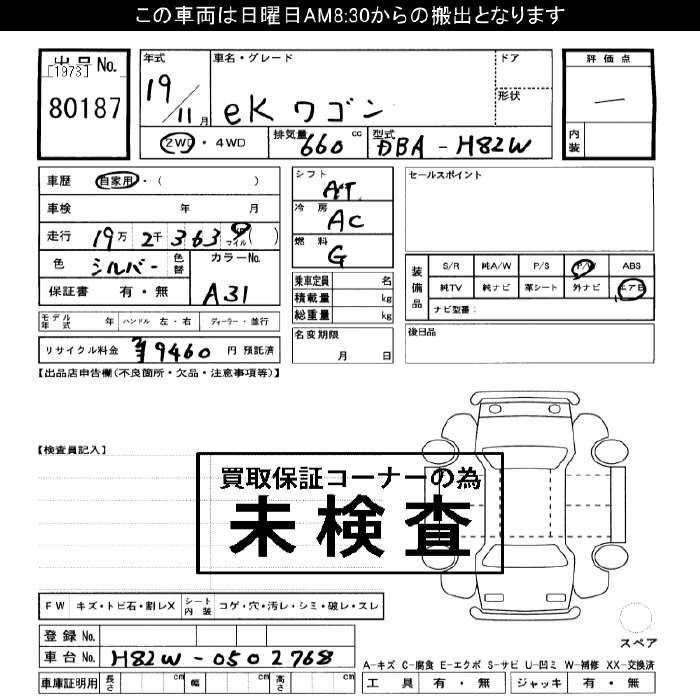 この車両は日曜日AM8:30からの搬出となります
出品No.
[1973]
80187
年式
19/11月
車名・グレード
eK ワゴン
ドア
形状
評価点
—
内装
2WD・4WD
排気量 660 cc
型式 DBA-H82W
車歴 自家用・( )
車検 年 月
走行 19万 2千 363 マイル( )
色 シルバー 色替
カラーNo.
A31
保証書 有・無
シフト
AT
冷房
AC
燃料
G
乗車定員 名
積載量 kg
総重量 kg
名変期限
月 日
セールスポイント
装備品
S/R 純A/W P/S P/W ABS
純TV 純ナビ 革シート 外ナビ エアB
ナビ型番:
後日品
モデル年式 年 ハンドル 左・右 ディーラー・並行
リサイクル料金 ¥9460 円 預託済
【出品店申告欄(不良箇所・欠品・注意事項等)】
【検査員記入】
買取保証コーナーの為
未検査
FW キズ・トビ石・割レX シート内装 コゲ・穴・汚レ・シミ・破レ・スレ
登録No.
車台No. H82W-0502768
車庫証明用 長さ cm 幅 cm 高さ cm
スペア
A-キズ C-腐食 E-エクボ S-サビ U-凹ミ W-補修 XX-交換済
工具 有・無 ジャッキ 有・無